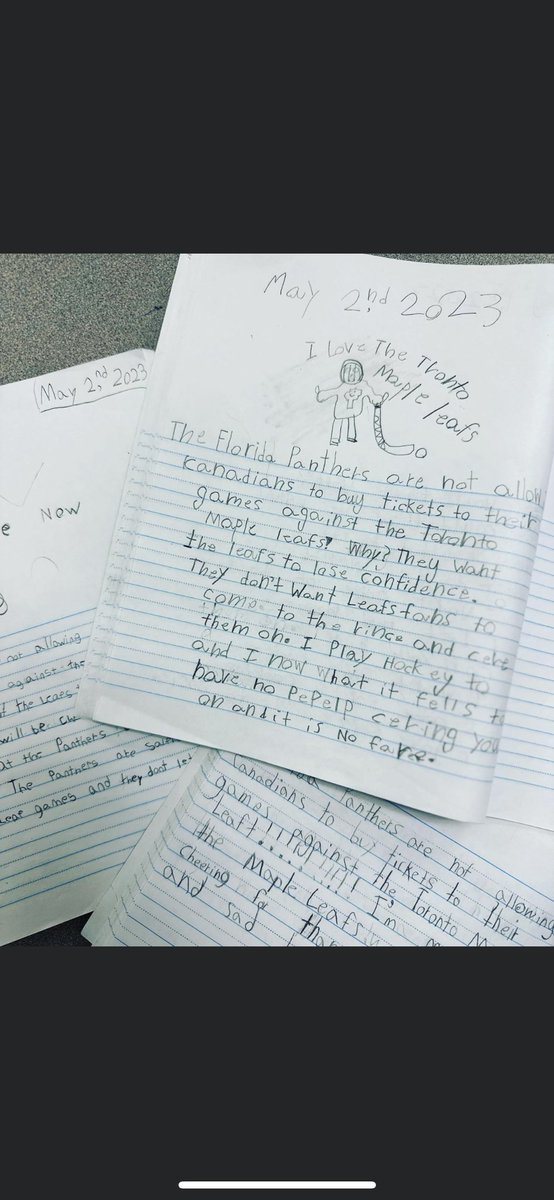 May 2nd 2023
I love The Tronto
Maple leafs
The Florida Panthers are not allow
Kanadians to buy tickets to their
games against the Toronto
Maple leafs! Why? They want
the leafs to lose confidence.
They don't want Leafsfans to
come to the rince and
them on. I Play Hockey to
and I now what it fells to
have no PePelp cering you
on and it is No faire.
May 2nd 2023
e Now
not allowing
against the
f the leafs
will be
at the Panthers
The Panthers are
Leaf games and they dont let
Panthers are not allowing
Canadians to buy tickets to their
games against the Toronto M
Leaf I'm
the Maple Leafs
cheering for
and sad